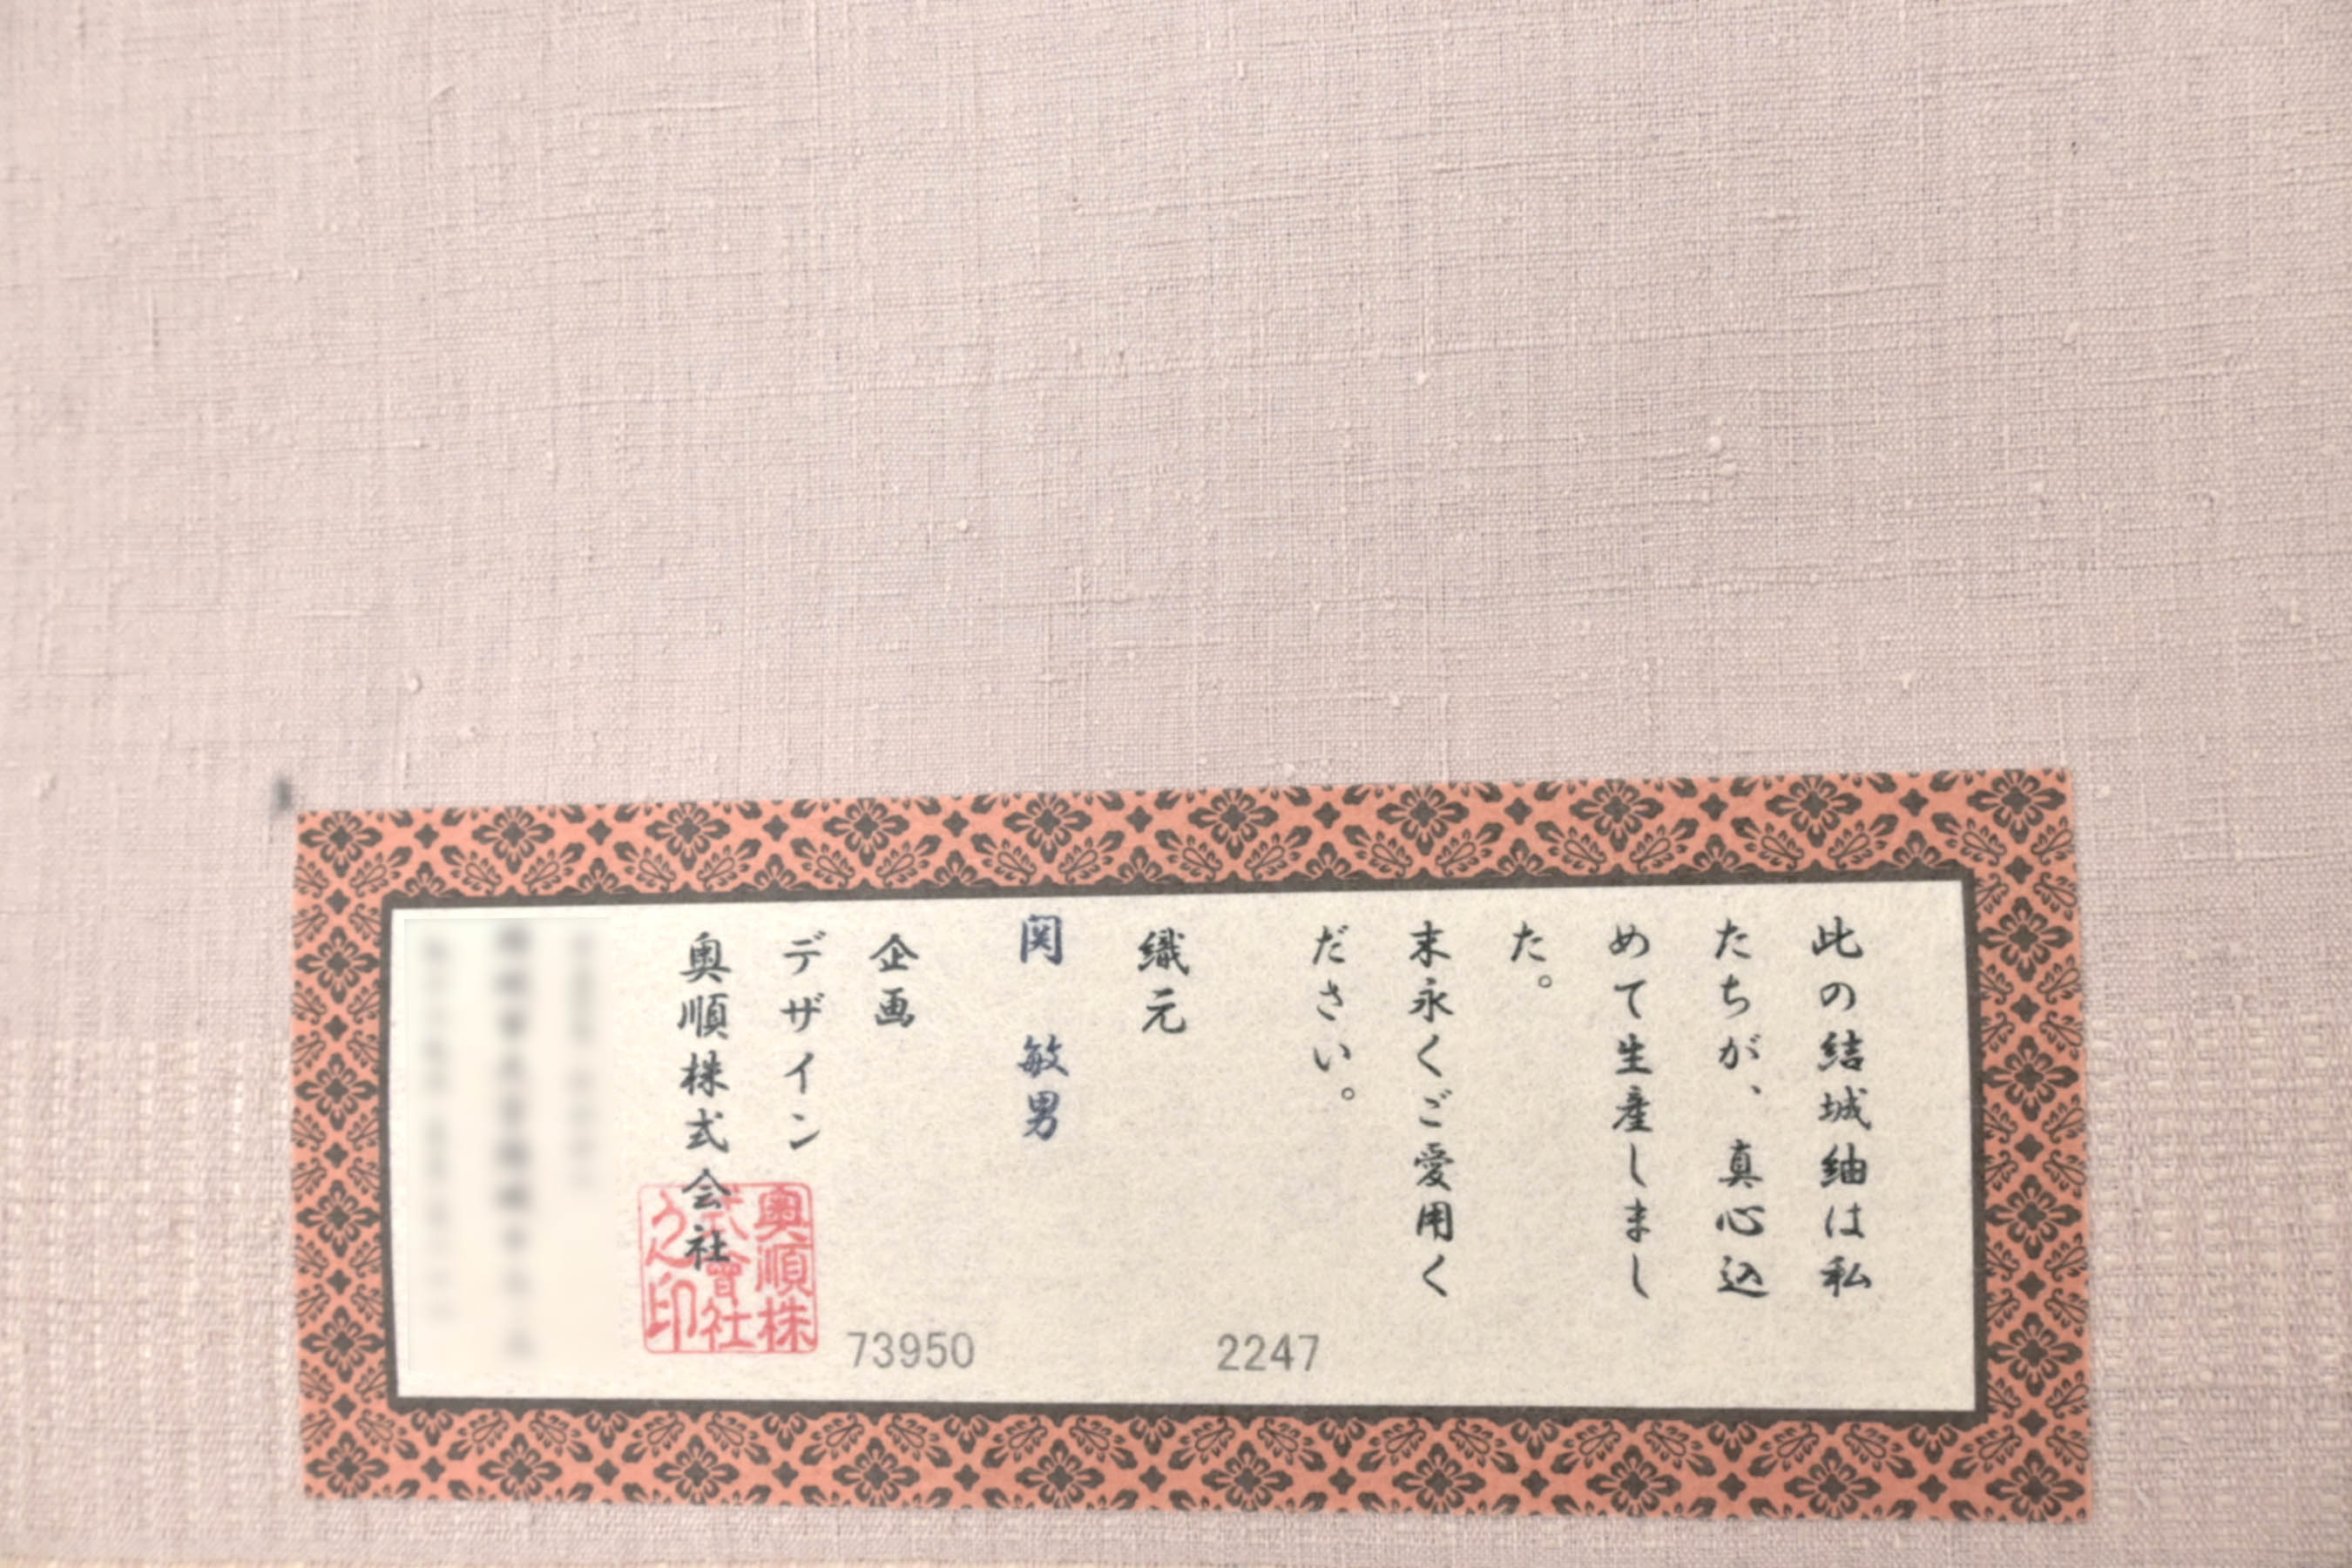 此の結城紬は私
たちが、真心込
めて生産しまし
た。
末永くご愛用く
ださい。
織元
関 敏男
企画
デザイン
奥順株式会社
奥順株
式會社
之印
2247
73950